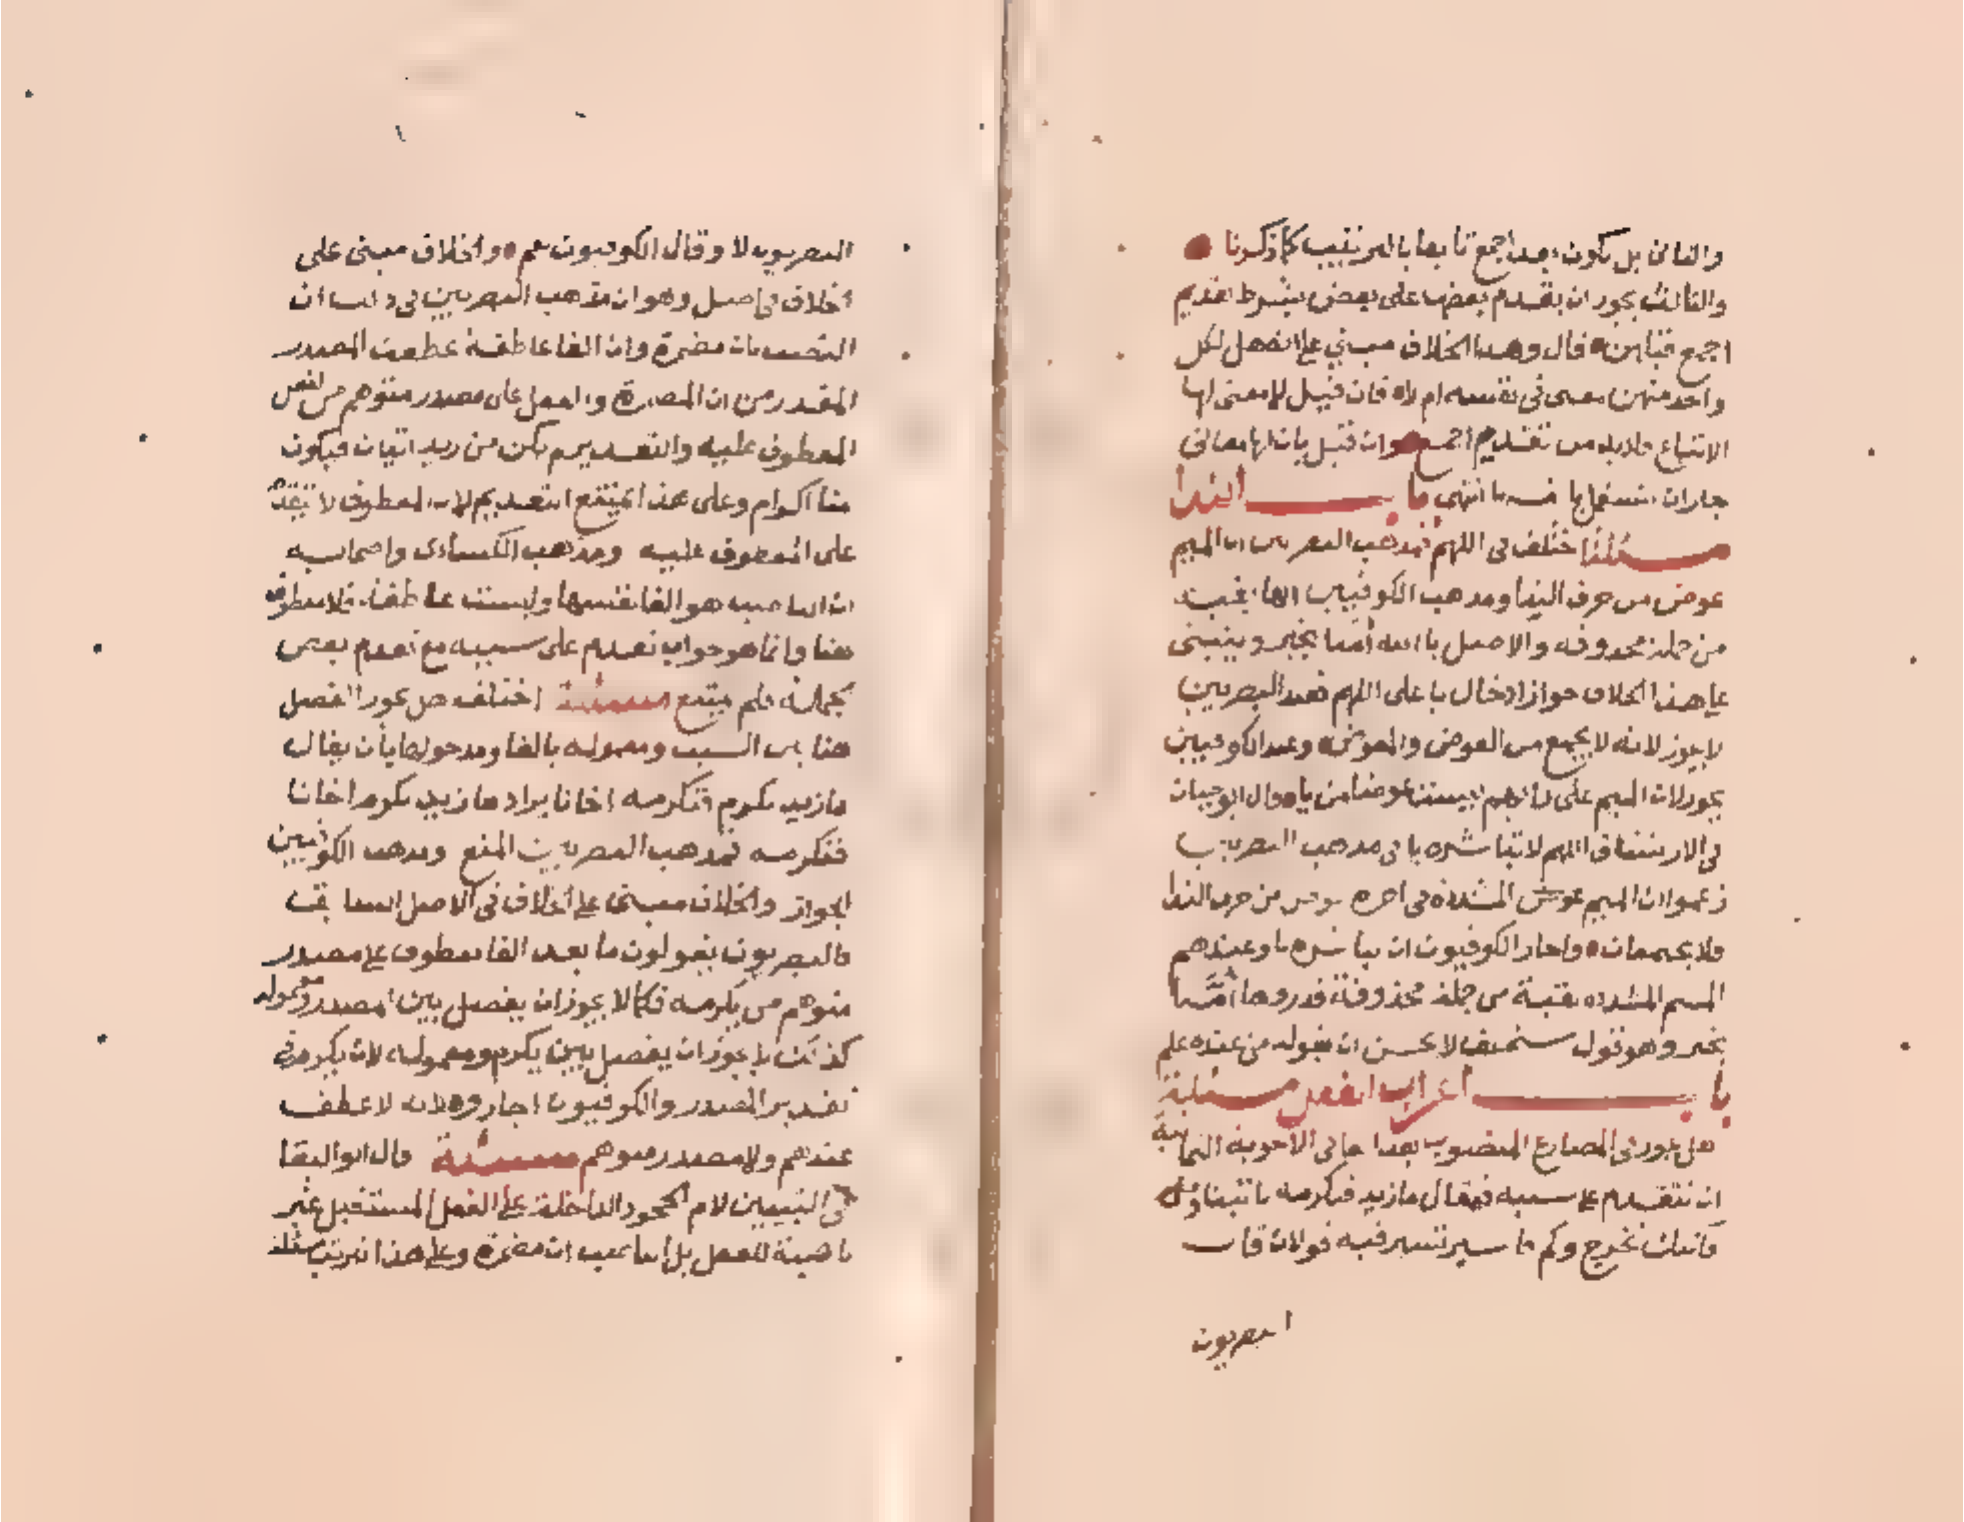 والثانى بل يكون بعد اجمع تابعا بالترتيب كما ذكرنا
والثالث يجوز ان يقدم بعضها على بعض بشرط تقديم
اجمع قبلهن قال وهذا الخلاف مبني على انه هل لكل
واحد منهن معنى فى نفسه ام لا فان قيل لا معنى لها
الا الاتباع فلا بد من تقديم اجمع وان قيل بان لها معانى
جاز ان تستعمل بانفسها انتهى باب الندا
مسئلة اختلف فى اللهم فمذهب البصريين ان الميم
عوض من حرف الندا ومذهب الكوفيين انها بقيت
من جملة محذوفه والاصل يا الله أمنا بخير وينبنى
على هذا الخلاف جواز ادخال يا على اللهم فعند البصريين
لا يجوز لانه لا يجمع بين العوض والمعوض وعند الكوفيين
يجوز لان الميم على رايهم ليست عوضا من يا وقال ابو حيان
فى الارتشاف اللهم لا تباشره يا فى مذهب البصريين
زعموا ان الميم المشدده فى اخره عوض من حرف الندا
فلا يجتمعان واجاز الكوفيون ان تباشره يا وعندهم
الميم المشدده بقية من جملة محذوفة قدروها أمّنا
بخير وهو قول سخيف لا يحسن ان يقوله من عنده علم
باب اعراب الفعل مسئلة
هل يجوز فى المضارع المنصوب بعد الفا فى الاجوبة الثمانية
ان تتقدم على سببه فيقال ما زيد فنكرمه ياتينا
فاتيك تخرج وكم ما تسير تسير فيه قولان قال
البصريون
البصريون لا وقال الكوفيون نعم والخلاف مبنى على
الخلاف فى اصل وهو ان مذهب البصريين فى ذلك ان
النصب بان مضمرة وان الفا عاطفة عطفت المصدر
المقدر من ان المضمرة والفعل على مصدر متوهم من الفعل
المعطوف عليه والتقدير لم يكن من زيد اتيان فيكون
منا اكرام وعلى هذا يمتنع التقديم لان المعطوف لا يتقدم
على المعطوف عليه ومذهب الكسائى واصحابه
ان الناصب هو الفا نفسها وليست عاطفة فلا معطوف
هنا وانما هو جواب تقدم على سببه مع تقدم بعض
الجملة فلم يمتنع مسئلة اختلف هل يجوز الفصل
هنا بين السبب ومعموله بالفا ومدخولها بان يقال
ما زيد يكرم فنكرمه اخانا يراد ما زيد يكرم اخانا
فنكرمه فمذهب البصريين المنع ومذهب الكوفيين
الجواز والخلاف مبنى على الخلاف فى الاصل السابق
فالبصريون يقولون ما بعد الفا معطوف على مصدر
متوهم من يكرمه فكما لا يجوز ان يفصل بين المصدر ومعموله
كذلك لا يجوز ان يفصل بين يكرم ومعموله لان يكرم فى
تقدير المصدر والكوفيون اجازوه لانه لا عطف
عندهم ولا مصدر متوهم مسئلة قال ابو البقا
فى التبيين لام الجحود الداخلة على الفعل المستقبل غير
ناصبة للفعل بل الناصب ان مضمرة وعلى هذا تترتب مسئلة